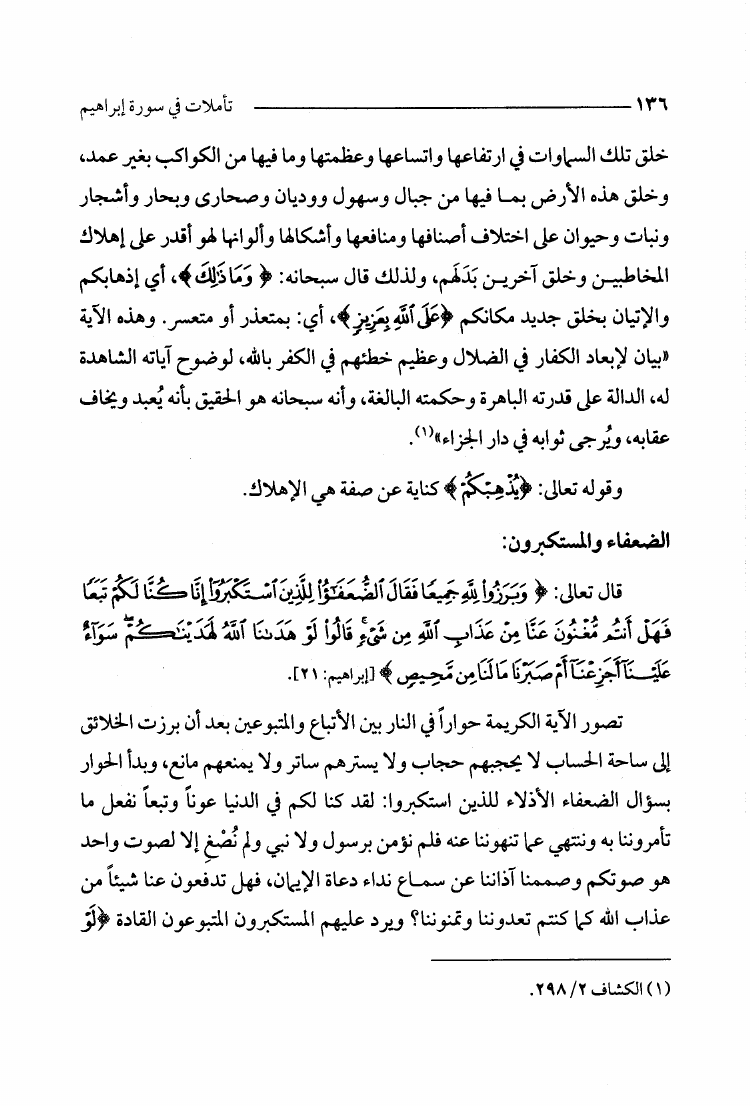 ١٣٦ تأملات في سورة إبراهيم
خلق تلك السماوات في ارتفاعها واتساعها وعظمتها وما فيها من الكواكب بغير عمد،
وخلق هذه الأرض بما فيها من جبال وسهول ووديان وصحارى وبحار وأشجار
ونبات وحيوان على اختلاف أصنافها ومنافعها وأشكالها وألوانها لهو أقدر على إهلاك
المخاطبين وخلق آخرين بَدَلَهم، ولذلك قال سبحانه: ﴿ وَمَا ذَٰلِكَ ﴾، أي إذهابكم
والإتيان بخلق جديد مكانكم ﴿عَلَى ٱللَّهِ بِعَزِيزٍ﴾، أي: بمتعذر أو متعسر. وهذه الآية
«بيان لإبعاد الكفار في الضلال وعظيم خطئهم في الكفر بالله، لوضوح آياته الشاهدة
له، الدالة على قدرته الباهرة وحكمته البالغة، وأنه سبحانه هو الحقيق بأنه يُعبد ويخاف
عقابه، ويُرجى ثوابه في دار الجزاء»(١).
وقوله تعالى: ﴿يُذْهِبْكُمْ﴾ كناية عن صفة هي الإهلاك.
الضعفاء والمستكبرون:
قال تعالى: ﴿ وَبَرَزُوا۟ لِلَّهِ جَمِيعًا فَقَالَ ٱلضُّعَفَٰٓؤُا۟ لِلَّذِينَ ٱسْتَكْبَرُوٓا۟ إِنَّا كُنَّا لَكُمْ تَبَعًا
فَهَلْ أَنتُم مُّغْنُونَ عَنَّا مِنْ عَذَابِ ٱللَّهِ مِن شَىْءٍ ۚ قَالُوا۟ لَوْ هَدَىٰنَا ٱللَّهُ لَهَدَيْنَٰكُمْ ۖ سَوَآءٌ
عَلَيْنَآ أَجَزِعْنَآ أَمْ صَبَرْنَا مَا لَنَا مِن مَّحِيصٍ ﴾ [إبراهيم: ٢١].
تصور الآية الكريمة حواراً في النار بين الأتباع والمتبوعين بعد أن برزت الخلائق
إلى ساحة الحساب لا يحجبهم حجاب ولا يسترهم ساتر ولا يمنعهم مانع، وبدأ الحوار
بسؤال الضعفاء الأذلاء للذين استكبروا: لقد كنا لكم في الدنيا عوناً وتبعاً نفعل ما
تأمروننا به وننتهي عما تنهوننا عنه فلم نؤمن برسول ولا نبي ولم نُصْغِ إلا لصوت واحد
هو صوتكم وصممنا آذاننا عن سماع نداء دعاة الإيمان، فهل تدفعون عنا شيئاً من
عذاب الله كما كنتم تعدوننا وتمنوننا؟ ويرد عليهم المستكبرون المتبوعون القادة ﴿لَوْ
(١) الكشاف ٢/ ٢٩٨.